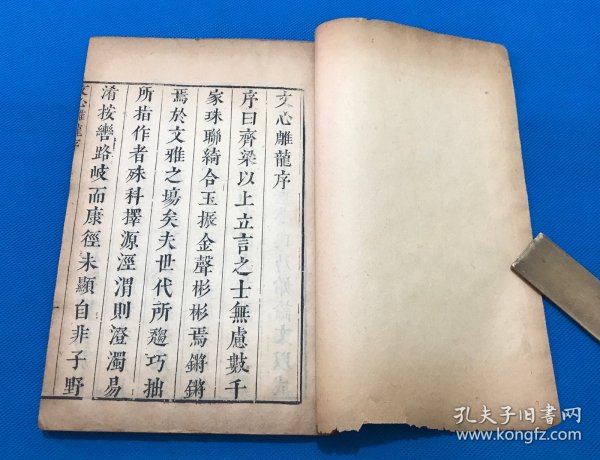 文心雕龍序
序曰齊梁以上立言之士無慮數千
家珠聯綺合玉振金聲彬彬焉鏘鏘
焉於文雅之場矣夫世代所趨巧拙
所指作者殊科擇源涇渭則澄濁易
淆按轡路岐而康徑未顯自非子野
文心雕龍序
孔夫子旧书网
www.kongfz.com